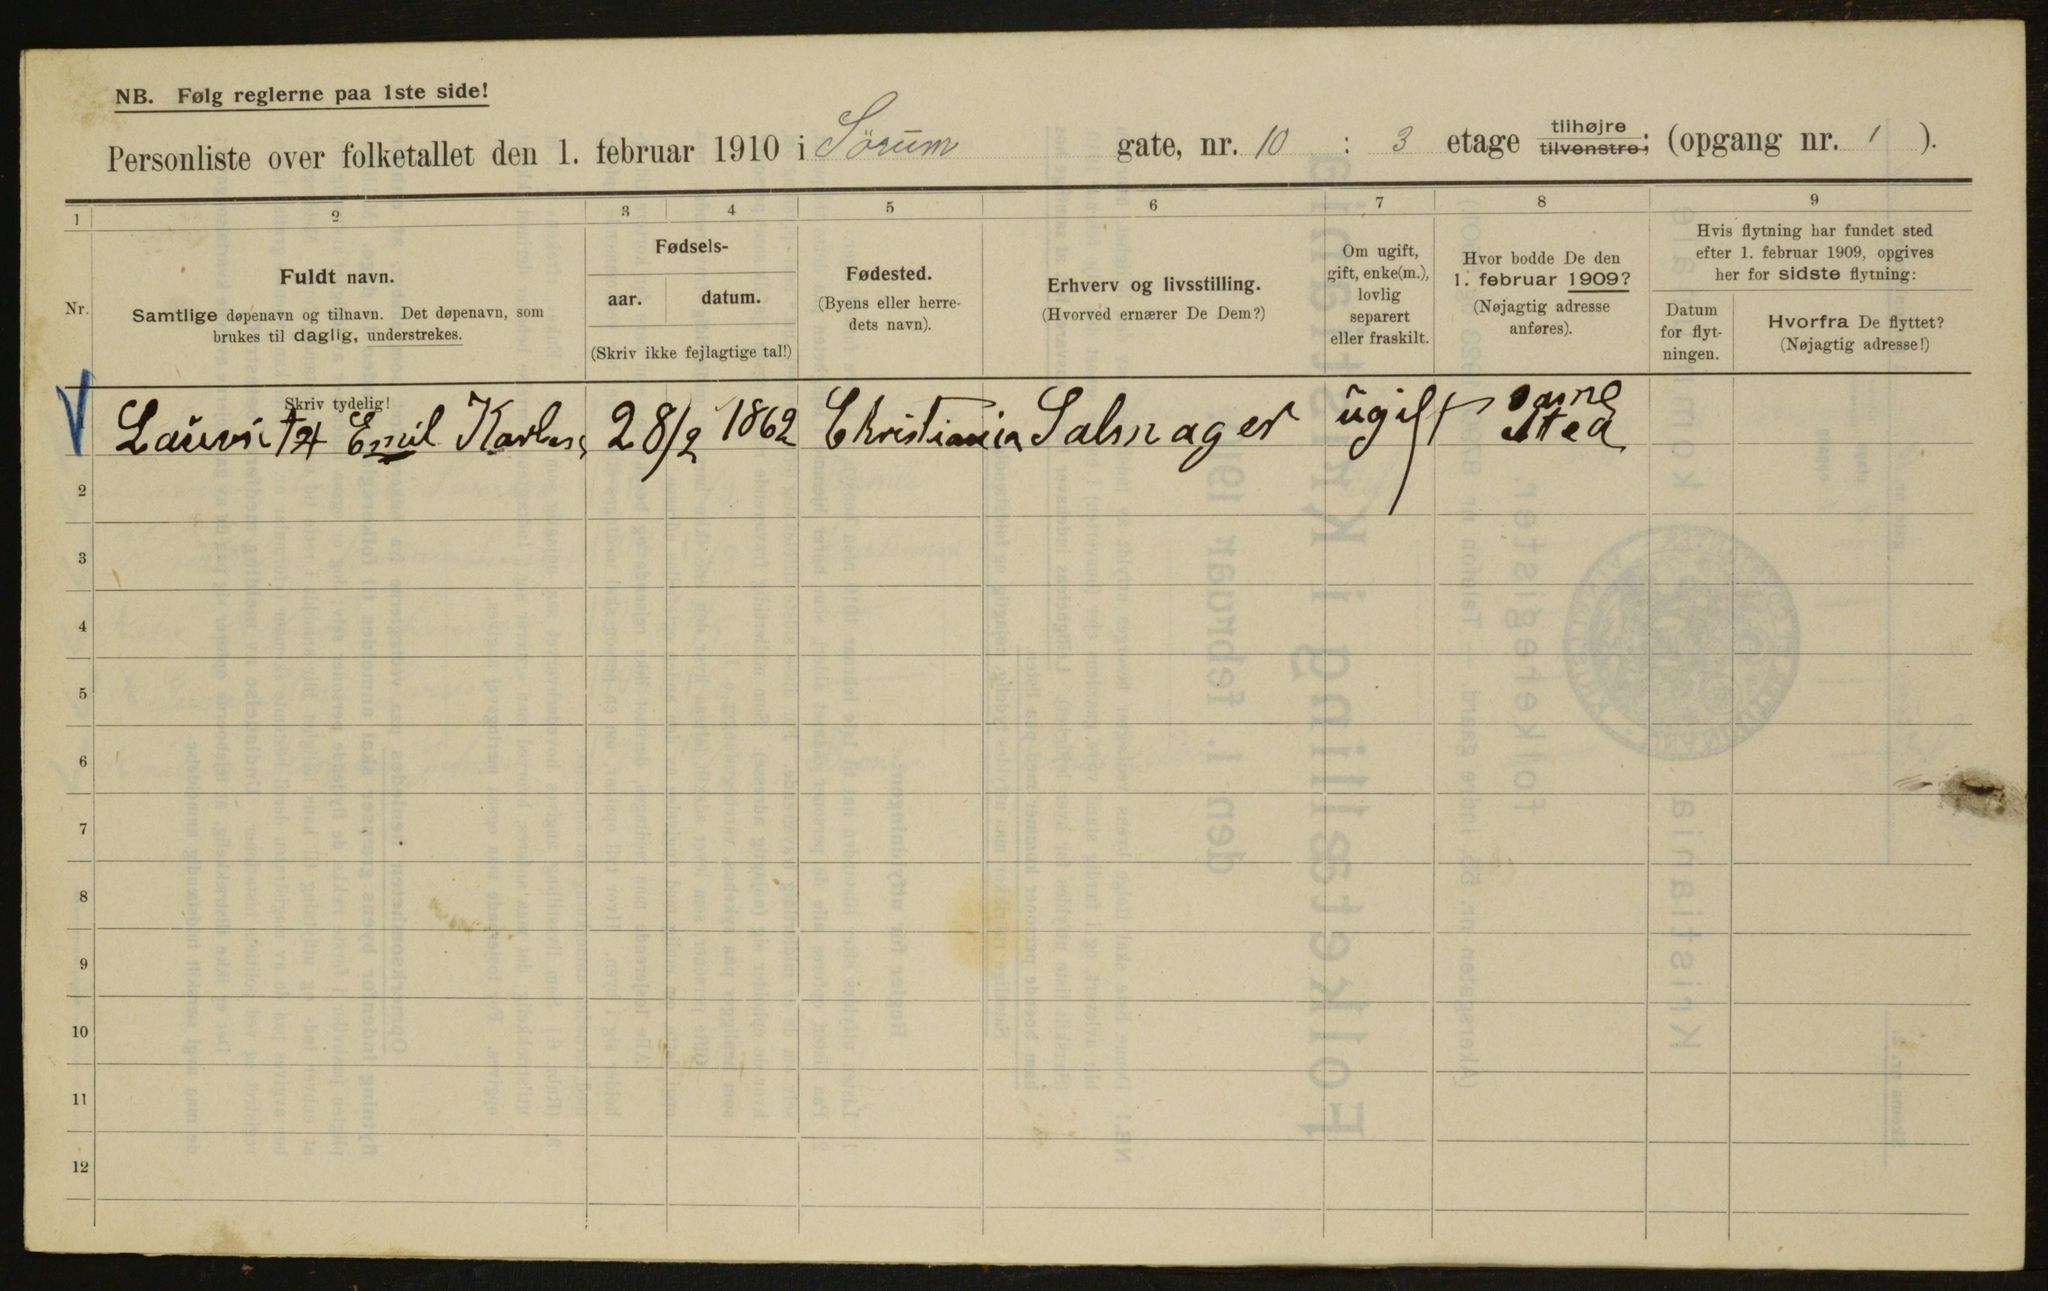 NB. Følg reglerne paa 1ste side!
Personliste over folketallet den 1. februar 1910 i Sörum gate, nr. 10 : 3 etage tilhøjre tilvenstre; (opgang nr. 1 ).
1 2 3 4 5 6 7 8 9
Nr.
Fuldt navn.
Samtlige døpenavn og tilnavn. Det døpenavn, som
brukes til daglig, understrekes.
Skriv tydelig!
Fødsels-
aar. datum.
(Skriv ikke fejlagtige tal!)
Fødested.
(Byens eller herre-
dets navn).
Erhverv og livsstilling.
(Hvorved ernærer De Dem?)
Om ugift,
gift, enke(m.),
lovlig
separert
eller fraskilt.
Hvor bodde De den
1. februar 1909?
(Nøjagtig adresse
anføres).
Hvis flytning har fundet sted
efter 1. februar 1909, opgives
her for sidste flytning:
Datum
for flyt-
ningen.
Hvorfra De flyttet?
(Nøjagtig adresse!)
Emil 28/2 1862 Christiania Salmager ugift samme Sted
2
3
4
5
6
7
8
9
10
11
12